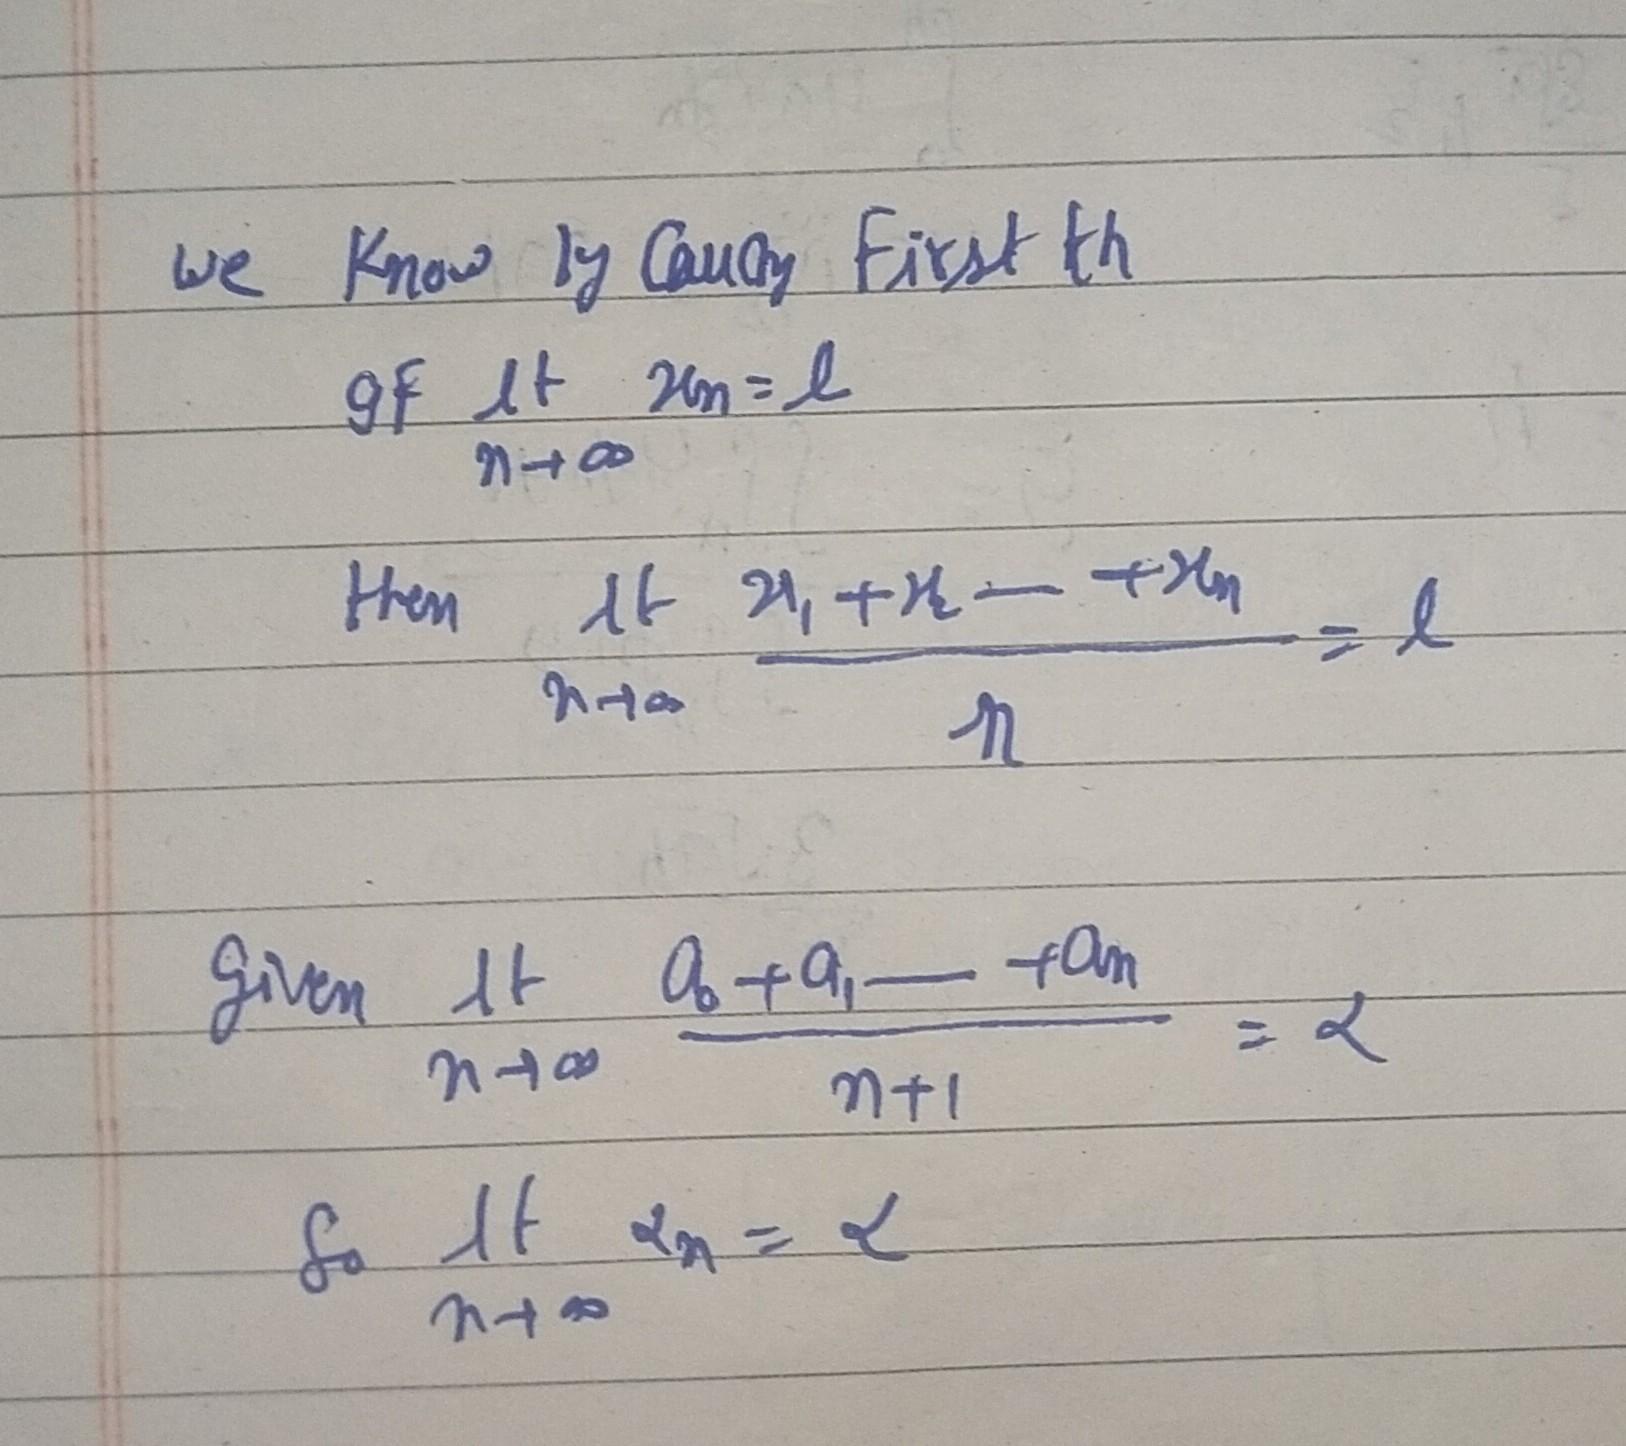 we know by Cauchy First th
If lt xn = l
n→∞
then lt x1 + x2 — + xn = l
n→∞ n
Given lt a0 + a1 — + an = α
n→∞ n+1
So lt αn = α
n→∞